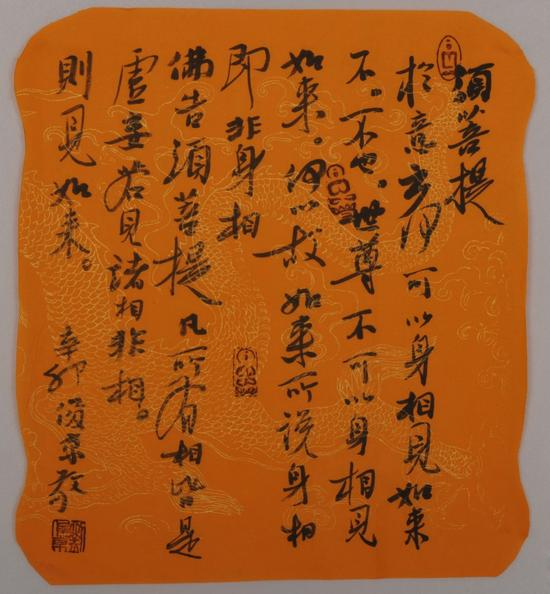 須菩提
於意云何可以身相見如來
不。不也。世尊不可以身相見
如來。何以故如來所說身相
即非身相
佛告須菩提凡所有相皆是
虛妄若見諸相非相。
則見如來。
辛卯